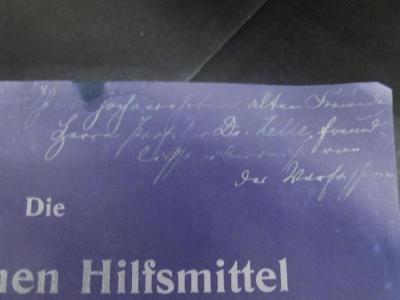 Seinem hochverehrten alten Freunde
Herrn Prof. Dr. freund=
lichst überreicht vom
der Verfasser
Die
nen Hilfsmittel